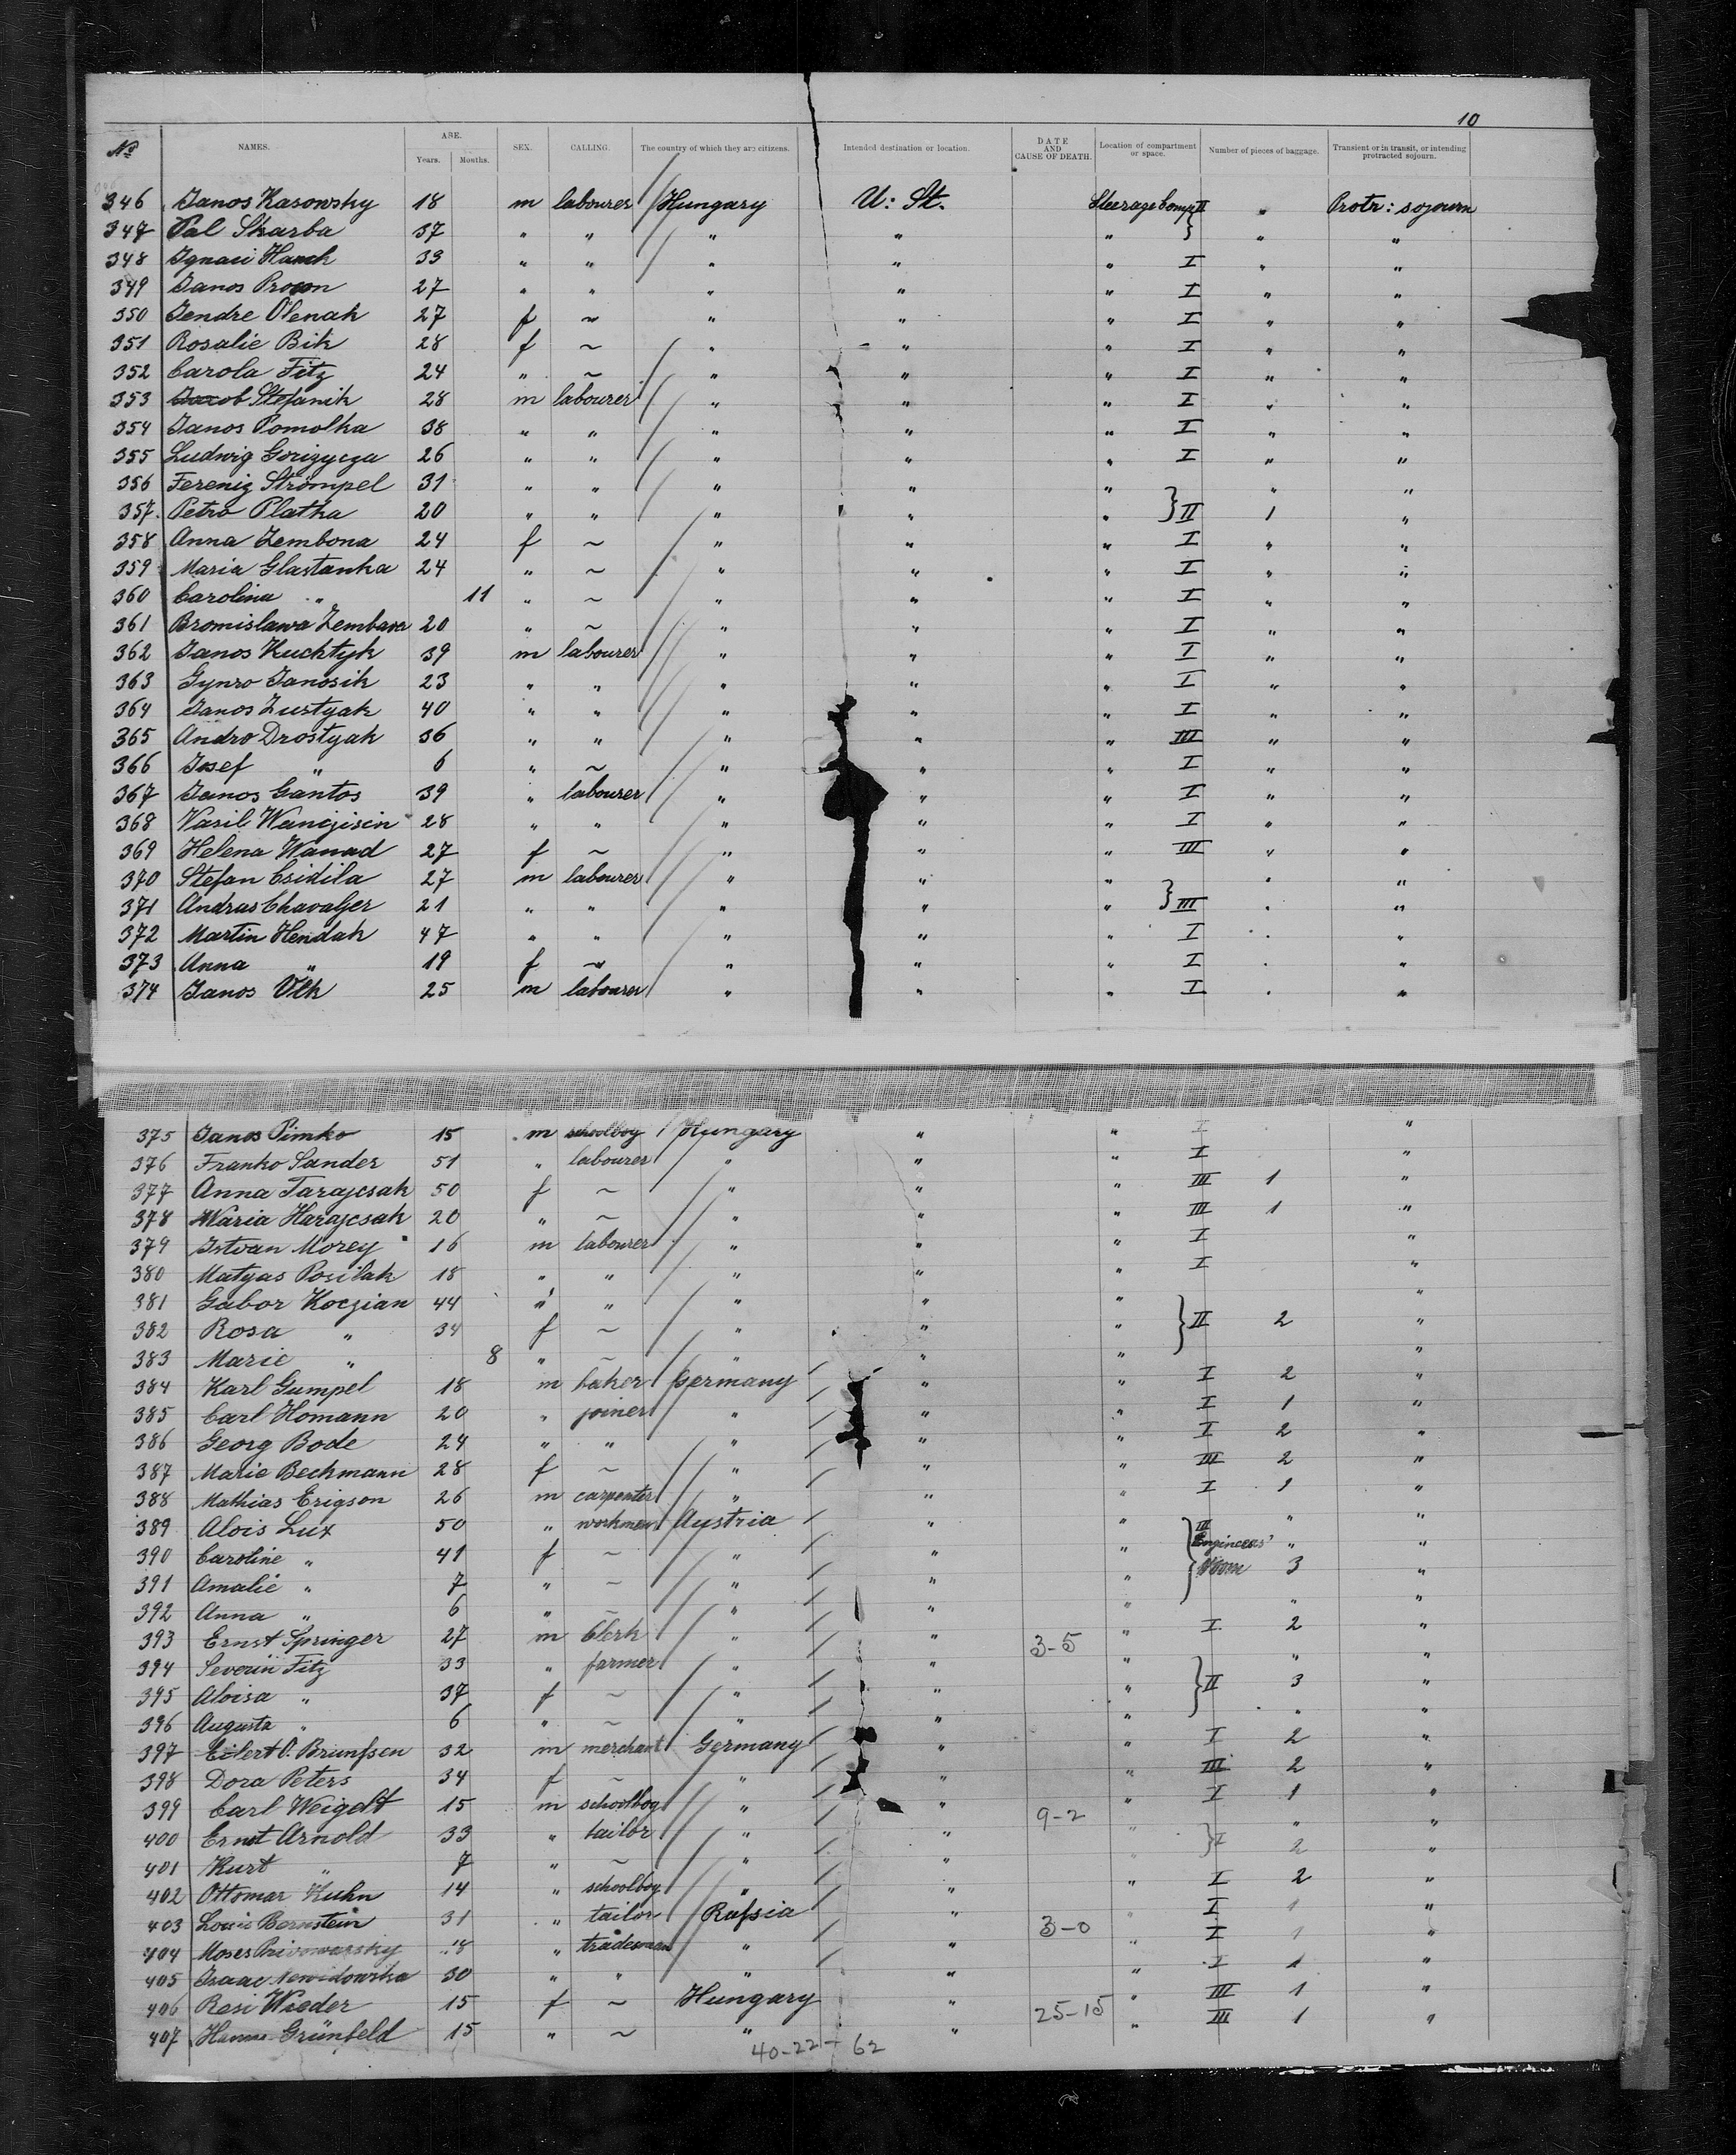 10
No NAMES. AGE. Years. Months. SEX. CALLING. The country of which they are citizens. Intended destination or location. DATE AND CAUSE OF DEATH. Location of compartment or space. Number of pieces of baggage. Transient or in transit, or intending protracted sojourn.
346 Janos Kasowsky 18 m labourer Hungary U: St. Steerage Comp II " Protr: sojourn
347 Pal Skarba 37 " " " " " } " "
348 Ignaci Hanch 33 " " " " " I " "
349 Janos 27 " " " " " I " "
350 Jendre Olenak 27 f ~ " " " I " "
351 Rosalie Bik 28 f ~ " " " I " "
352 Carola Fitz 24 " ~ " " " I " "
353 Jacob Stefanik 28 m labourer " " " I " "
354 Janos Pomolka 38 " " " " " I " "
355 Ludwig 26 " " " " " I " "
356 Ferenig Strömpel 31 " " " " " " "
357 Petro Platka 20 " " " " " } II 1 "
358 Anna Zembona 24 f ~ " " " I " "
359 Maria Glastanka 24 " ~ " " " I " "
360 Carolina " 11 " ~ " " " I " "
361 Bromislawa 20 " ~ " " " I " "
362 Janos Kucktyk 39 m labourer " " " I " "
363 Gynro Janosik 23 " " " " " I " "
364 Janos Zustyak 40 " " " " " I " "
365 Andro Drostyak 36 " " " " " III " "
366 Josef " 6 " ~ " " " I " "
367 Janos Gantos 39 " labourer " " " I " "
368 Vasil Wanczisin 28 " " " " " I " "
369 Helena Wanad 27 f ~ " " " III " "
370 Stefan Csidila 27 m labourer " " " " "
371 Andras Chavaljer 21 " " " " " } III " "
372 Martin Hendak 47 " " " " " I " "
373 Anna " 19 f ~ " " " I " "
374 Janos Vlk 25 m labourer " " " I " "
375 Janos Pimko 15 m schoolboy Hungary " " I "
376 Franko Sander 51 " labourer " " " I "
377 Anna Tarajcsak 50 f ~ " " " III 1 "
378 Maria Harajcsak 20 " ~ " " " III 1 "
379 Istvan Morey 16 m labourer " " " I "
380 Matyas Posilak 18 " " " " " I "
381 Gabor Koczian 44 " " " " " "
382 Rosa " 34 f ~ " " " } II 2 "
383 Marie " 8 " ~ " " " "
384 Karl Gumpel 18 m baker Germany " " I 2 "
385 Carl Homann 20 " joiner " " " I 1 "
386 Georg Bode 24 " " " " " I 2 "
387 Marie Beckmann 28 f ~ " " " III 2 "
388 Mathias Erigson 26 m carpenter " " " I 1 "
389 Alois Lux 50 " workman Austria " " III " "
390 Caroline " 41 f ~ " " " } Engineers' " "
391 Amalie " 7 " ~ " " " Room 3 "
392 Anna " 6 " ~ " " " " "
393 Ernst Springer 27 m Clerk " " 3-5 " I 2 "
394 Severin Fitz 33 " farmer " " " " "
395 Aloisa " 37 f ~ " " " } II 3 "
396 Augusta " 6 " ~ " " " " "
397 Eilert O. Brunssen 32 m merchant Germany " " I 2 "
398 Dora Peters 34 f ~ " " " III 2 "
399 Carl Weigelt 15 m schoolboy " " 9-2 " I 1 "
400 Ernst Arnold 33 " tailor " " " " "
401 Kurt " 7 " ~ " " " } I 2 "
402 Ottomar Kuhn 14 " schoolboy " " " I 2 "
403 Louis Bernstein 31 " tailor Russia " 3-0 " I 1 "
404 Moses 18 " tradesman " " " I 1 "
405 Isaac 30 " " " " " I 1 "
406 Resi Wieder 15 f ~ Hungary " 25-15 " III 1 "
407 Grünfeld 15 " ~ " " " III 1 "
40-22-62